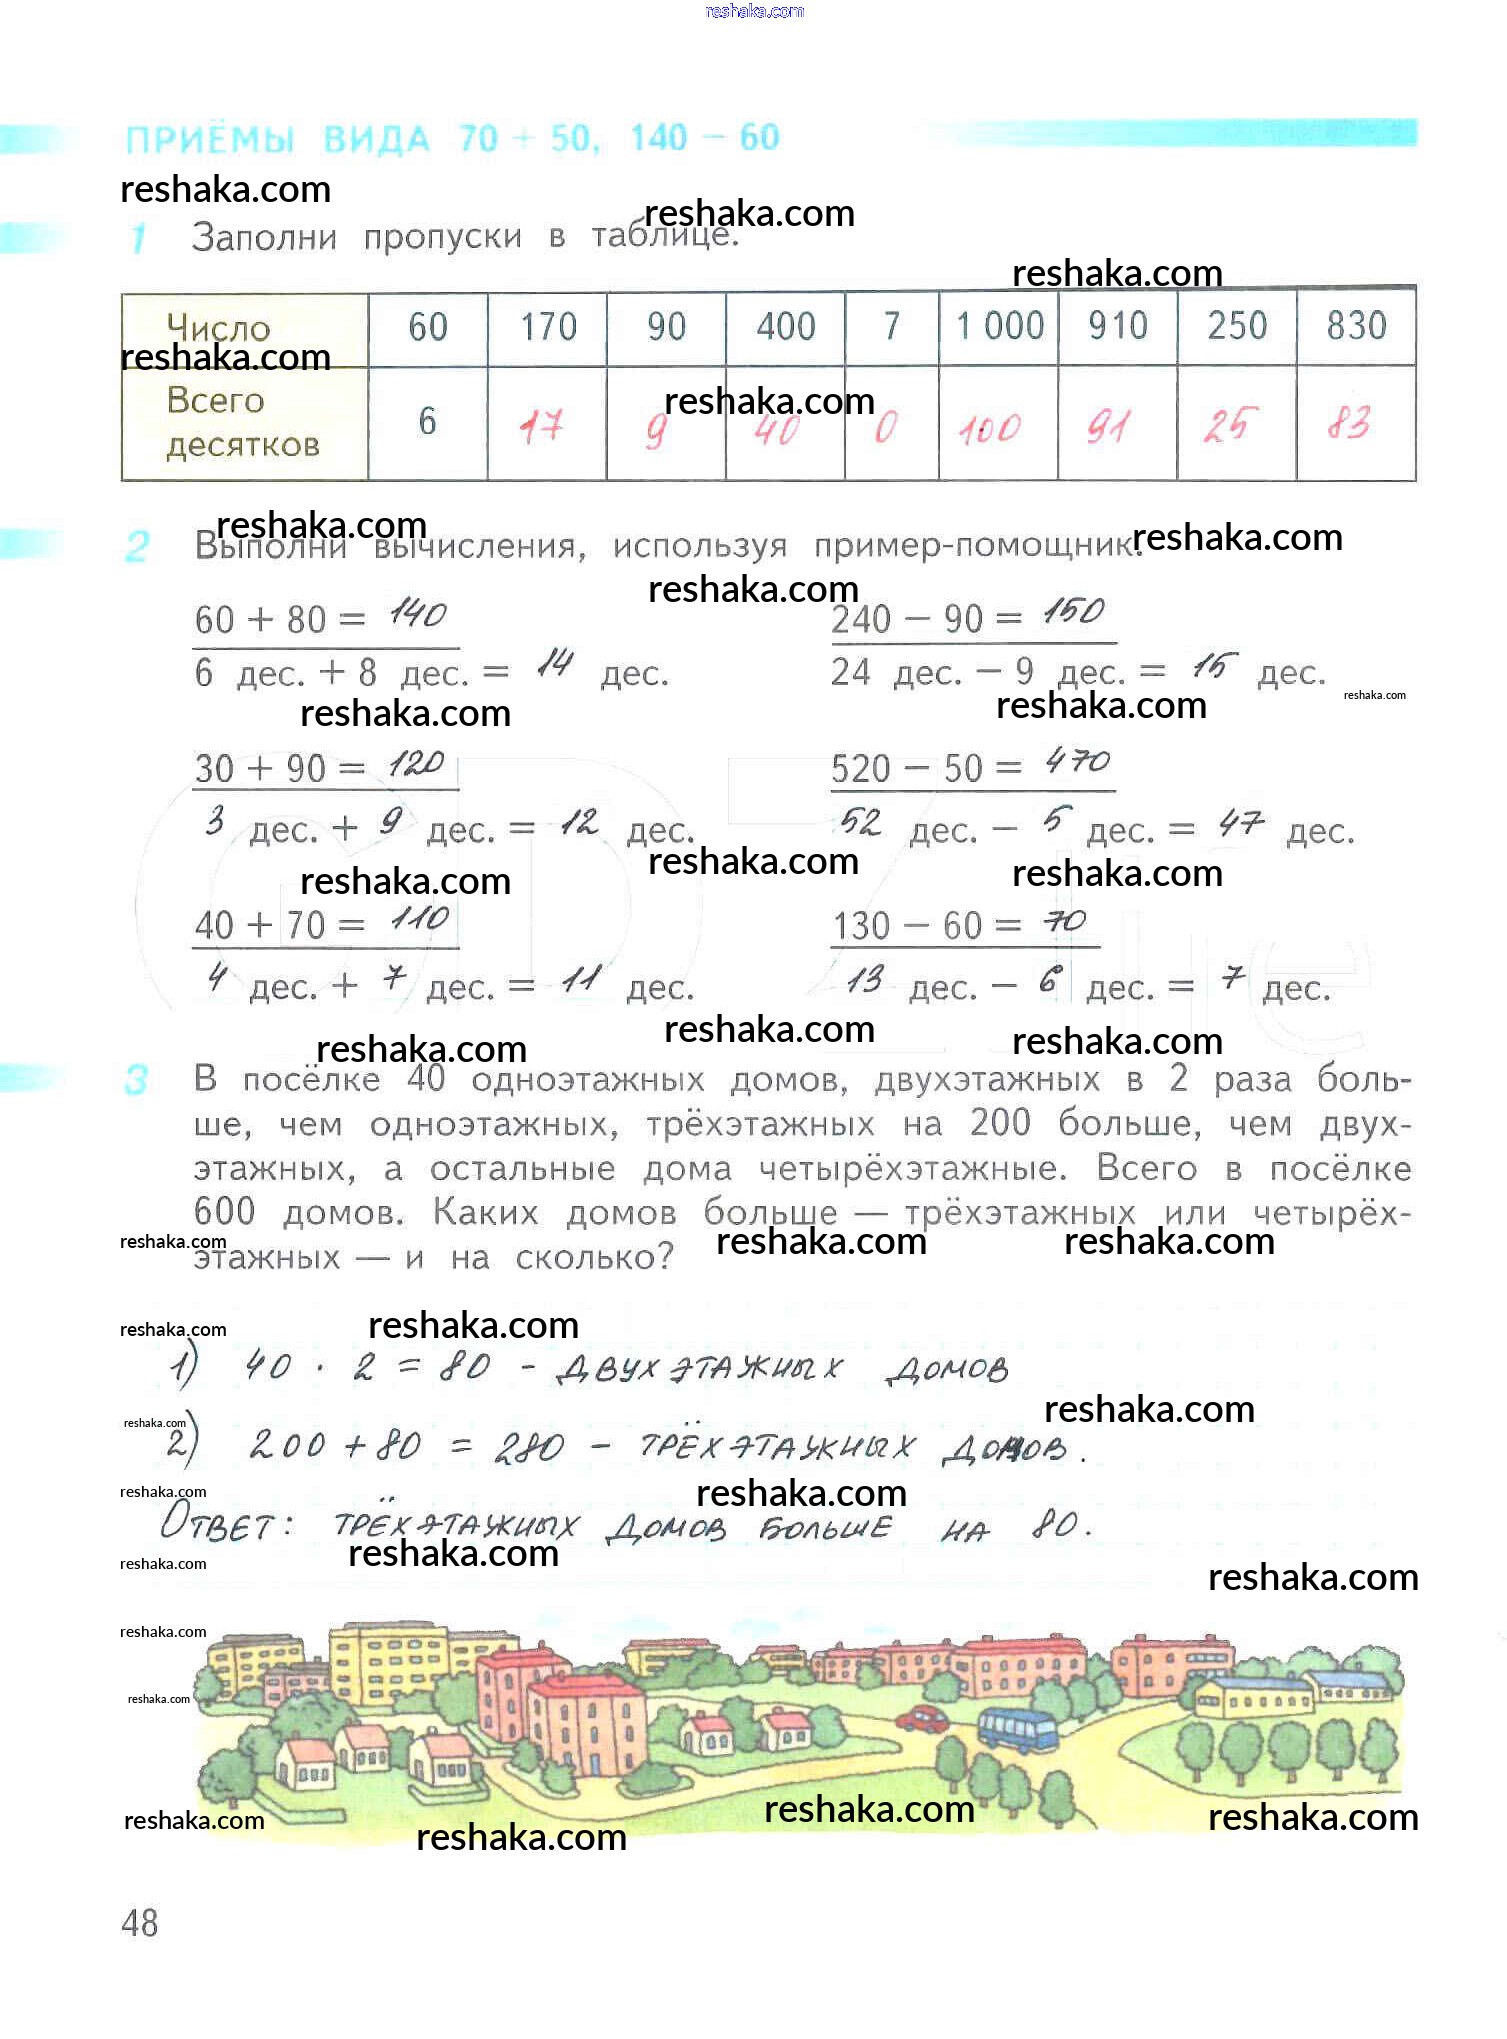 reshaka.com
ПРИЁМЫ ВИДА 70 + 50, 140 − 60
reshaka.com
reshaka.com
1 Заполни пропуски в таблице.
reshaka.com
Число 60 170 90 400 7 1 000 910 250 830
reshaka.com
Всего десятков 6 17 9 40 0 100 91 25 83
reshaka.com
reshaka.com
2 Выполни вычисления, используя пример-помощник.
reshaka.com
reshaka.com
60 + 80 = 140 240 − 90 = 150
6 дес. + 8 дес. = 14 дес. 24 дес. − 9 дес. = 15 дес.
reshaka.com
reshaka.com
reshaka.com
30 + 90 = 120 520 − 50 = 470
3 дес. + 9 дес. = 12 дес. 52 дес. − 5 дес. = 47 дес.
reshaka.com
reshaka.com
reshaka.com
40 + 70 = 110 130 − 60 = 70
4 дес. + 7 дес. = 11 дес. 13 дес. − 6 дес. = 7 дес.
reshaka.com
reshaka.com
reshaka.com
3 В посёлке 40 одноэтажных домов, двухэтажных в 2 раза боль-
ше, чем одноэтажных, трёхэтажных на 200 больше, чем двух-
этажных, а остальные дома четырёхэтажные. Всего в посёлке
600 домов. Каких домов больше — трёхэтажных или четырёх-
reshaka.com
reshaka.com
reshaka.com
этажных — и на сколько?
reshaka.com
reshaka.com
1) 40 · 2 = 80 - двухэтажных домов
reshaka.com
reshaka.com
2) 200 + 80 = 280 - трёхэтажных домов.
reshaka.com
reshaka.com
Ответ: трёхэтажных домов больше на 80.
reshaka.com
reshaka.com
reshaka.com
reshaka.com
reshaka.com
reshaka.com
reshaka.com
reshaka.com
reshaka.com
48